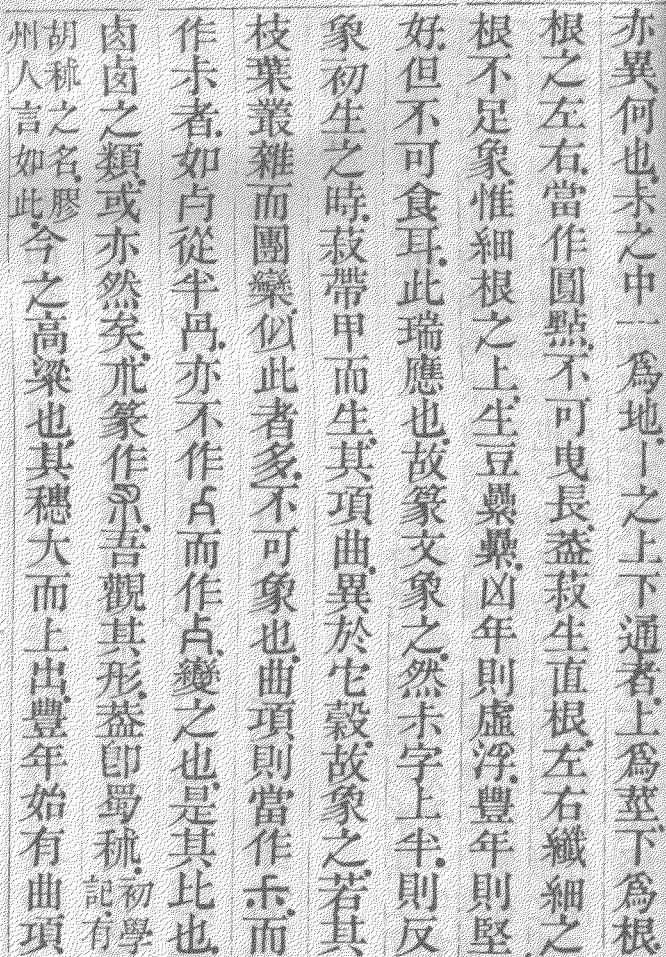 亦異何也尗之中一爲地丨之上下通者上爲莖下爲根
根之左右當作圓㸃不可曳長葢菽生直根左右纖細之
根不足象惟細根之上生豆纍纍凶年則虛浮豐年則堅
好但不可食耳此瑞應也故篆文象之然尗字上半則反
象初生之時菽帶甲而生其項曲異於它穀故象之若其
枝葉叢雜而團欒似此者多不可象也曲項則當作而
作尗者如卢從半冎亦不作而作變之也是其比也
卤卥之類或亦然矣朮篆作吾觀其形葢卽蜀秫初學記有
胡秫之名膠州人言如此今之高粱也其穗大而上出豐年始有曲項